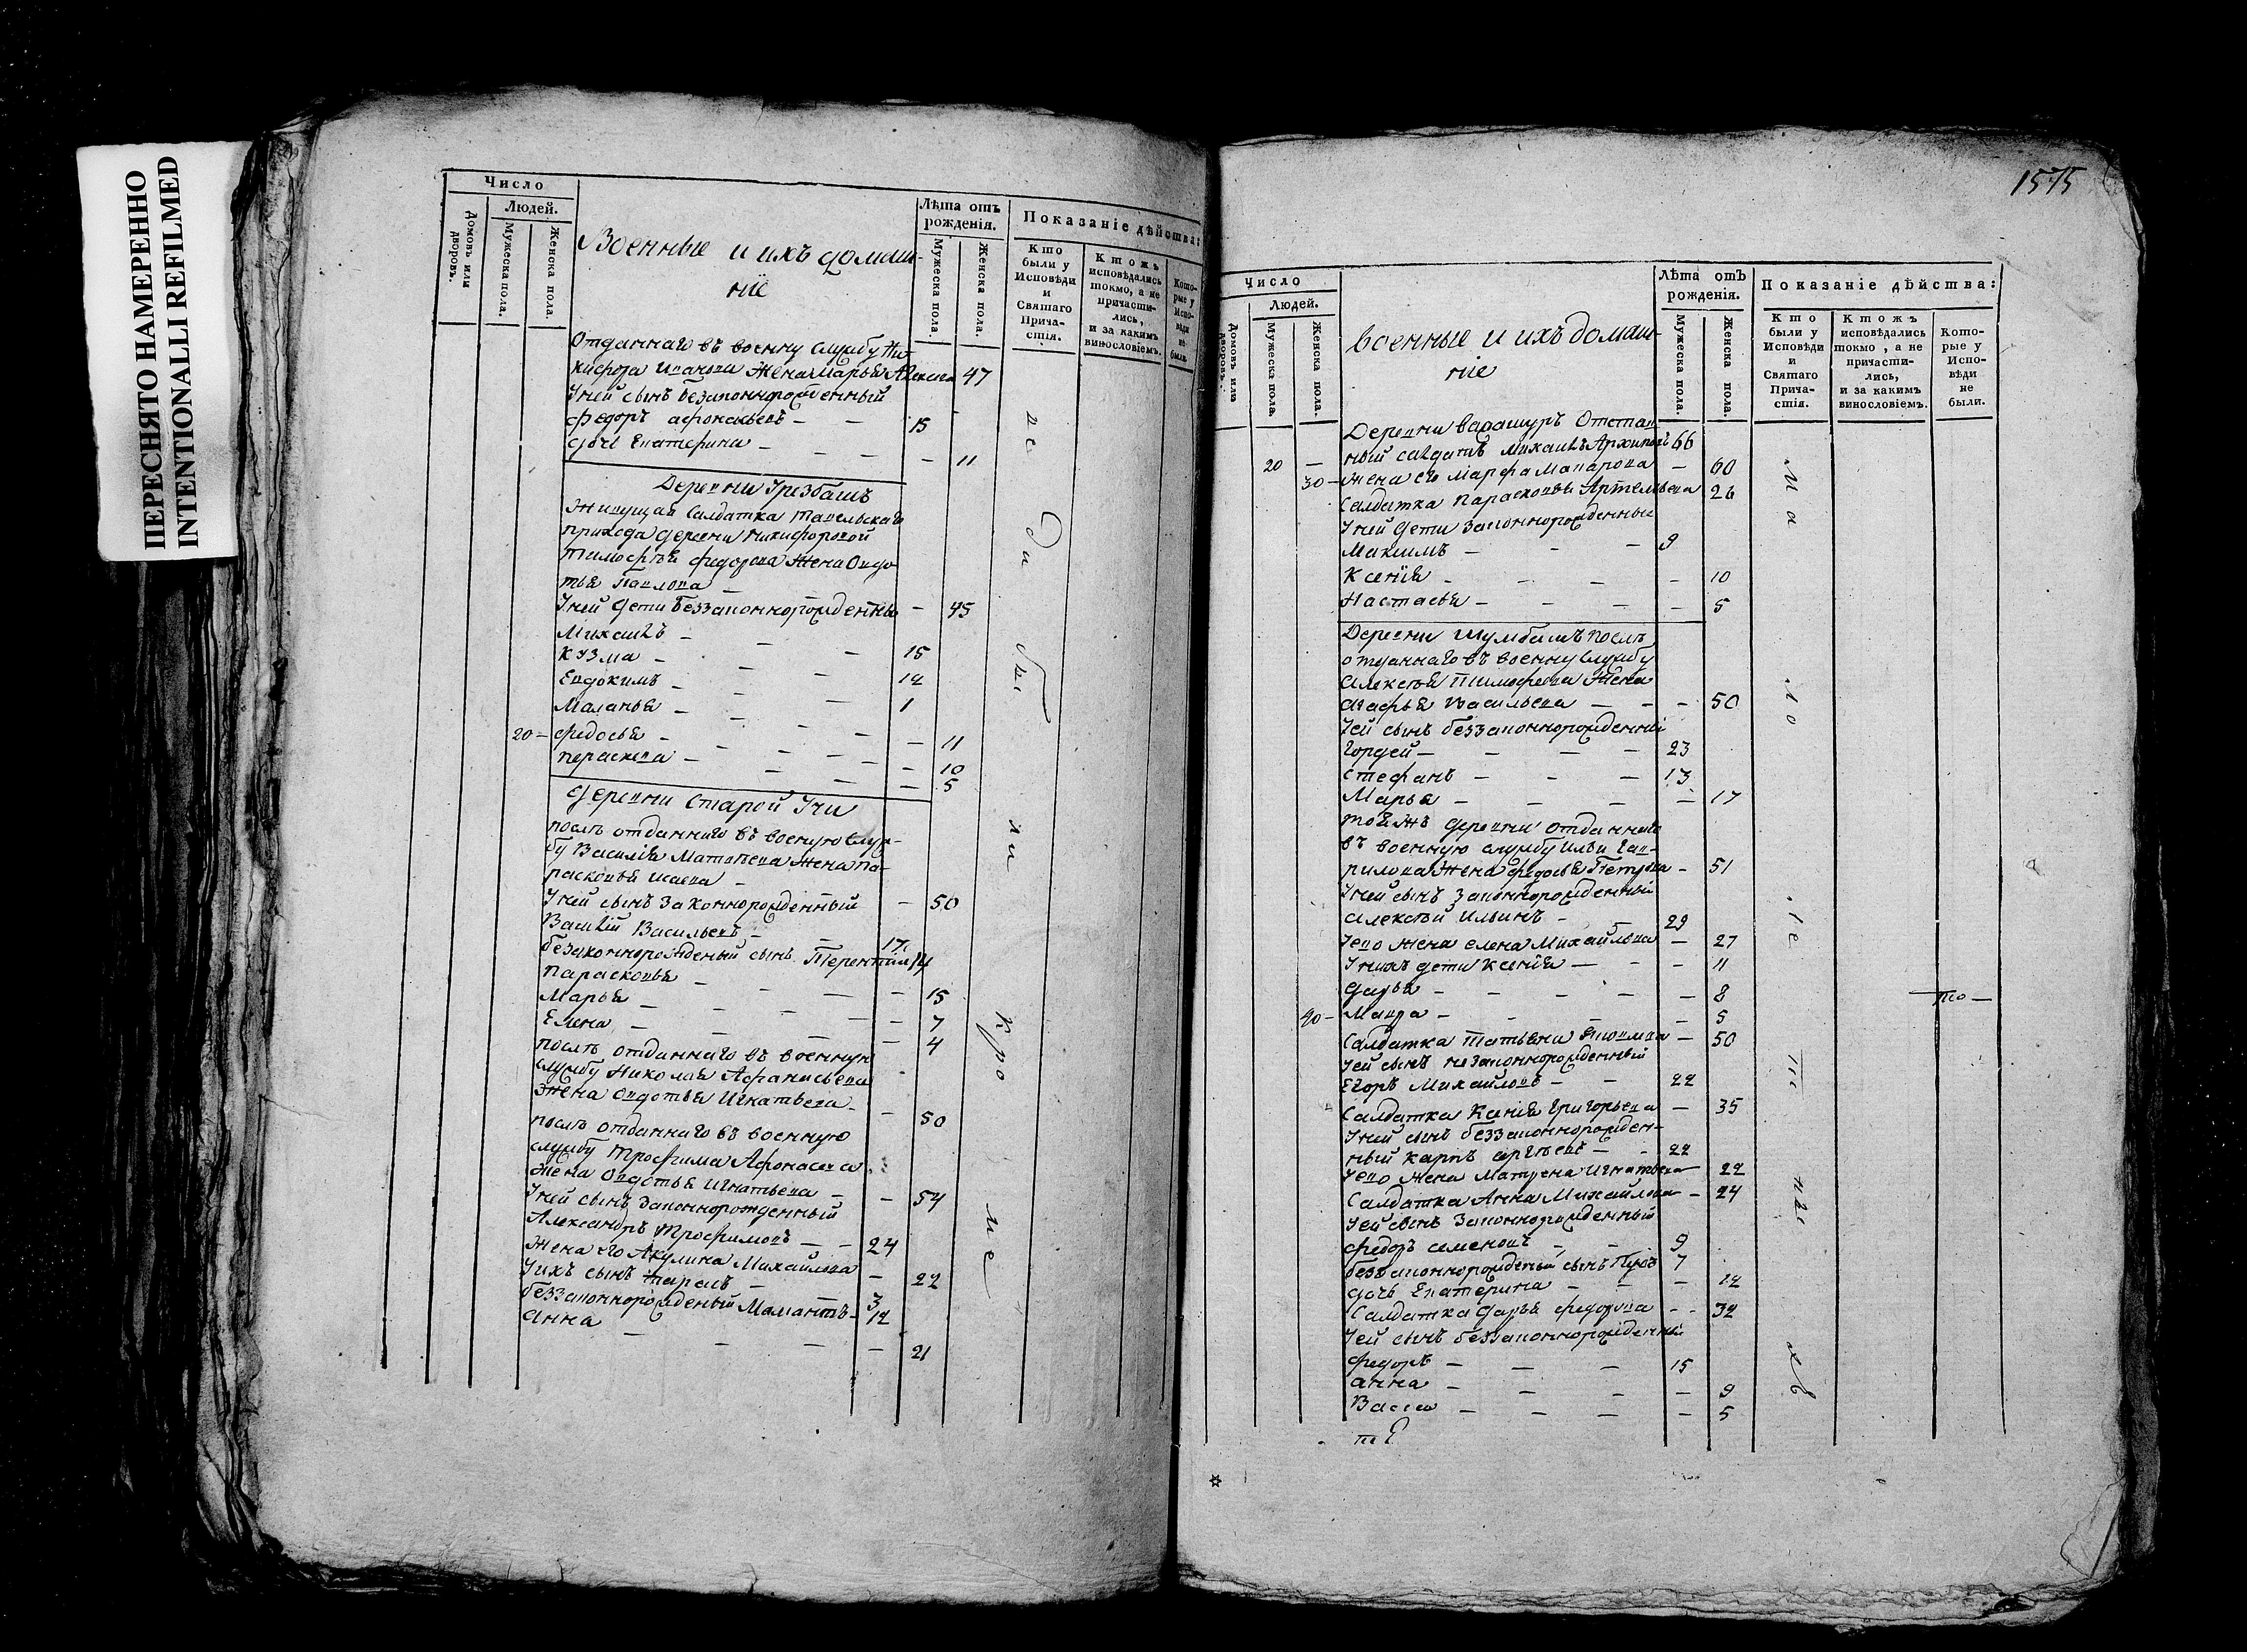 ПЕРЕСНЯТО НАМЕРЕННО
INTENTIONALLI REFILMED
Число
Людей.
Домовъ или дворовъ.
Мужеска пола.
Женска пола.
Военные и ихъ домаш-
ніе
Лѣта отъ рожденія.
Мужеска пола.
Женска пола.
Показаніе дѣйства:
Кто были у Исповѣди и Святаго Причастія.
Ктожъ исповѣдались токмо, а не причастились, и за какимъ винословіемъ.
Которые у Исповѣди не были.
Отданнаго въ военну службу Ни-
кифора Иванова жена Марья Алексе 47
У ней сынъ безаконнорожденный
Федоръ Афонасьевъ - - 15
дочь Екатерина - - - - 11
Деревни
Живущая салдатка
прихода деревни Никифоровой
Тимофѣя Федорова жена Овдо-
тья Павлова - -
У ней дети беззаконнорожденны - 45
Михаилъ - - - 15
Кузма - - - 12
Евдокимъ - - - 1
Маланья - - - - 11
20 - Федосья - - - - 10
Пераскева - - - - 5
Деревни Старой Учи
послѣ отданнаго въ военную служ-
бу Василія Матвѣева жена Па-
расковья Исаева - - 50
У ней сынъ законнорожденный
Василій Васильевъ - - 17
безаконнорожденый сынъ Терентій 14
Парасковья - - - - 15
Марья - - - - 7
Елена - - - - 4
послѣ отданнаго въ военную
службу Николая Афанасьева
жена Овдотья Игнатьева - - 50
послѣ отданнаго въ военную
службу Трофима Афонасева
жена Овдотья Игнатьева - - 54
У ней сынъ законнорожденный
Александръ Трофимовъ - - 24
жена его Акулина Михайлова - 22
У ихъ сынъ Тарасъ - 3
беззаконнорожденый Мамантъ - 12
Анна - - - - 21
1575
Число
Людей.
Домовъ или дворовъ.
Мужеска пола.
Женска пола.
военные и ихъ домаш-
ніе
Лѣта отъ рожденія.
Мужеска пола.
Женска пола.
Показаніе дѣйства:
Кто были у Исповѣди и Святаго Причастія.
Ктожъ исповѣдались токмо, а не причастились, и за какимъ винословіемъ.
Которые у Исповѣди не были.
Деревни Варашуръ Отстав
20 - ный салдатъ Михаилъ Архиповъ 66
30 - жена его Марфа Макарова - 60
Салдатка Парасковья Артемьева 26
У ней дети законнорожденныи
Максимъ - - - 9
Ксенія - - - - 10
Настасья - - - - 5
Деревни послѣ
отданнаго въ военну службу
Алексѣя Тимофеева жена
Агафья Васильева - - - 50
У ей сынъ беззаконнорожденный
Гордей - - - 23
Стефанъ - - - 13
Марья - - - - 17
Тояжъ деревни отданнаго
въ военную службу Ильи Гав-
рилова жена Федосья Петрова - 51
У ней сынъ законнорожденный
Алексѣй Ильинъ - - 29
У ево жена Елена Михайлова - 27
У нихъ дети Ксенія - - - 11
Дарья - - - - 8
40 - Мавра - - - - 5
то -
Салдатка Татьяна - 50
У ей сынъ незаконнорожденный
Егоръ Михайловъ - - 22
Салдатка Ксенія Григорьева - 35
У ней сынъ беззаконнорожден-
ный Карпъ Сергѣевъ - - 22
У ево жена Матрена Игнатьева 22
Салдатка Анна Михайлова - 24
У ей сынъ законнорожденный
Федоръ Семеновъ - - 9
безъзаконнорожденый сынъ Петръ 7
дочь Екатерина - - - 12
Салдатка Дарья Федорова - - 32
У ей сынъ беззаконнорожденный
Федоръ - - - 15
Анна - - - - 9
Васса - - - - 5